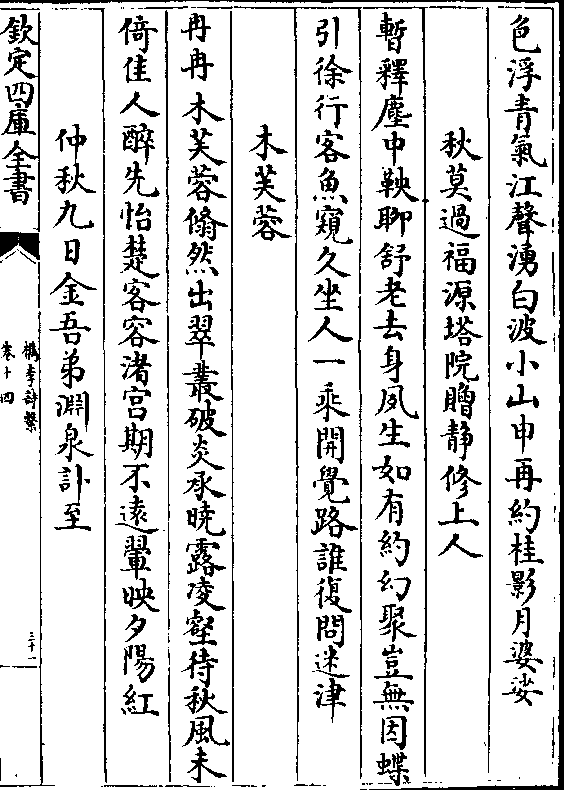 色浮青氣江聲湧白波小山申再約桂影月婆娑
秋莫過福源塔院贈靜修上人
暫釋塵中鞅聊舒老去身夙生如有約幻聚豈無因蝶
引徐行客魚窺久坐人一乘開覺路誰復問迷津
木芙蓉
冉冉木芙蓉翛然出翠叢破炎承曉露凌壑待秋風未
倚佳人醉先怡楚客容渚宮期不遠翬映夕陽紅
仲秋九日金吾弟淵泉訃至
欽定四庫全書
檇李詩繫
卷十四
三十一